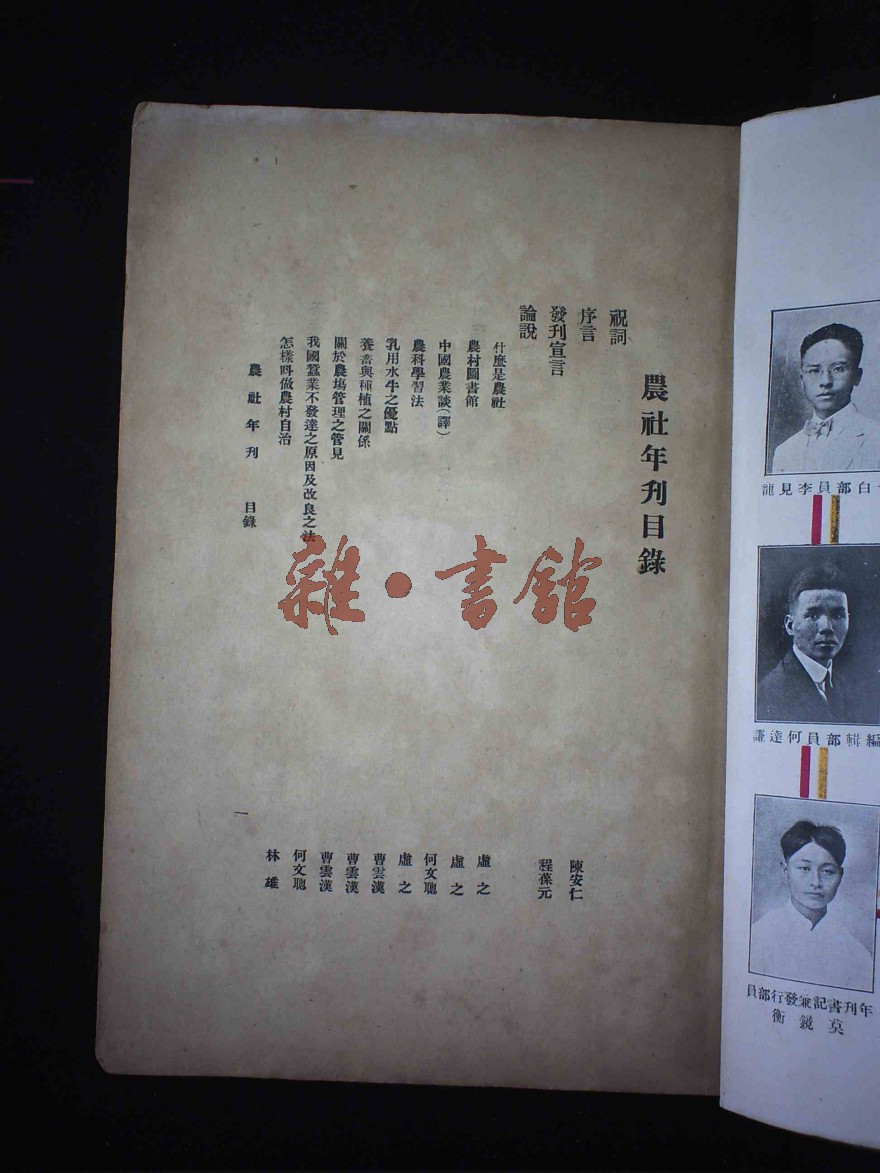 農社年刊目錄
祝詞
序言 陳安仁
發刊宣言 程葆元
論說
什麼是農社 虛之
農村圖書館 虛之
中國農業談(譯) 何文聰
農科學習法 虛之
乳用水牛之優點 曹雲漢
養畜與種植之關係 曹雲漢
關於農塲管理之管見 曹雲漢
我國蠶業不發達之原因及改良之法 何文聰
怎樣呌做農村自治 林雄
農社年刊 目錄
一
雜·書館
白部員李見龍
編輯部員何達謙
年刊書記兼發行部員
莫鏡衡